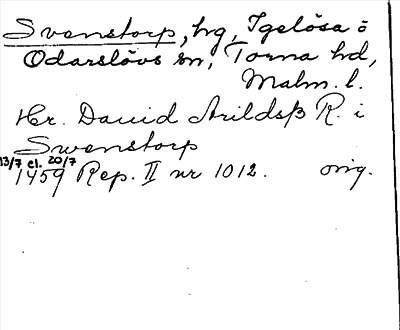 Svenstorp, hg, Igelösa o
Odarslövs sn, Torna hd,
Malm. l.
Hr. Dauid Arildsß R. i
Swenstorp
13/7 el. 20/7
1459 Rep. II nr 1012. orig.